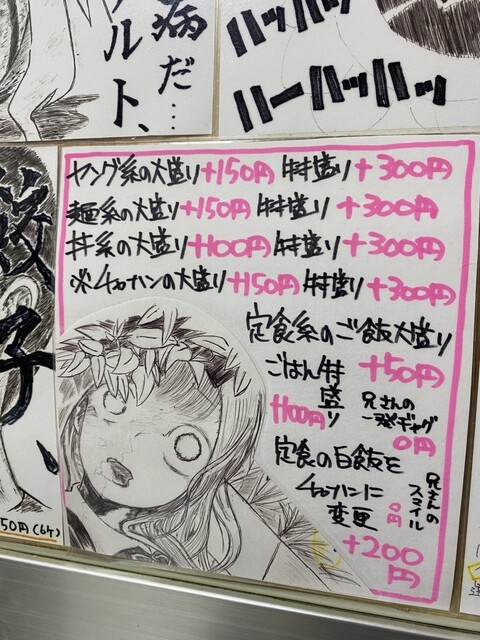 病だ…
ルト、
ハッハッ
ハーハッハッ
餃子、
50円(6ケ)
ヤング系の大盛り+150円 特盛り+300円
麺系の大盛り+150円 特盛り+300円
丼系の大盛り+100円 特盛り+300円
※チャーハンの大盛り+150円 特盛り+300円
定食系のご飯大盛り
+50円
ごはん特盛り
+100円
兄さんの一発ギャグ
0円
定食の白飯を
チャーハンに
変更
+200円
兄さんのスマイル
0円